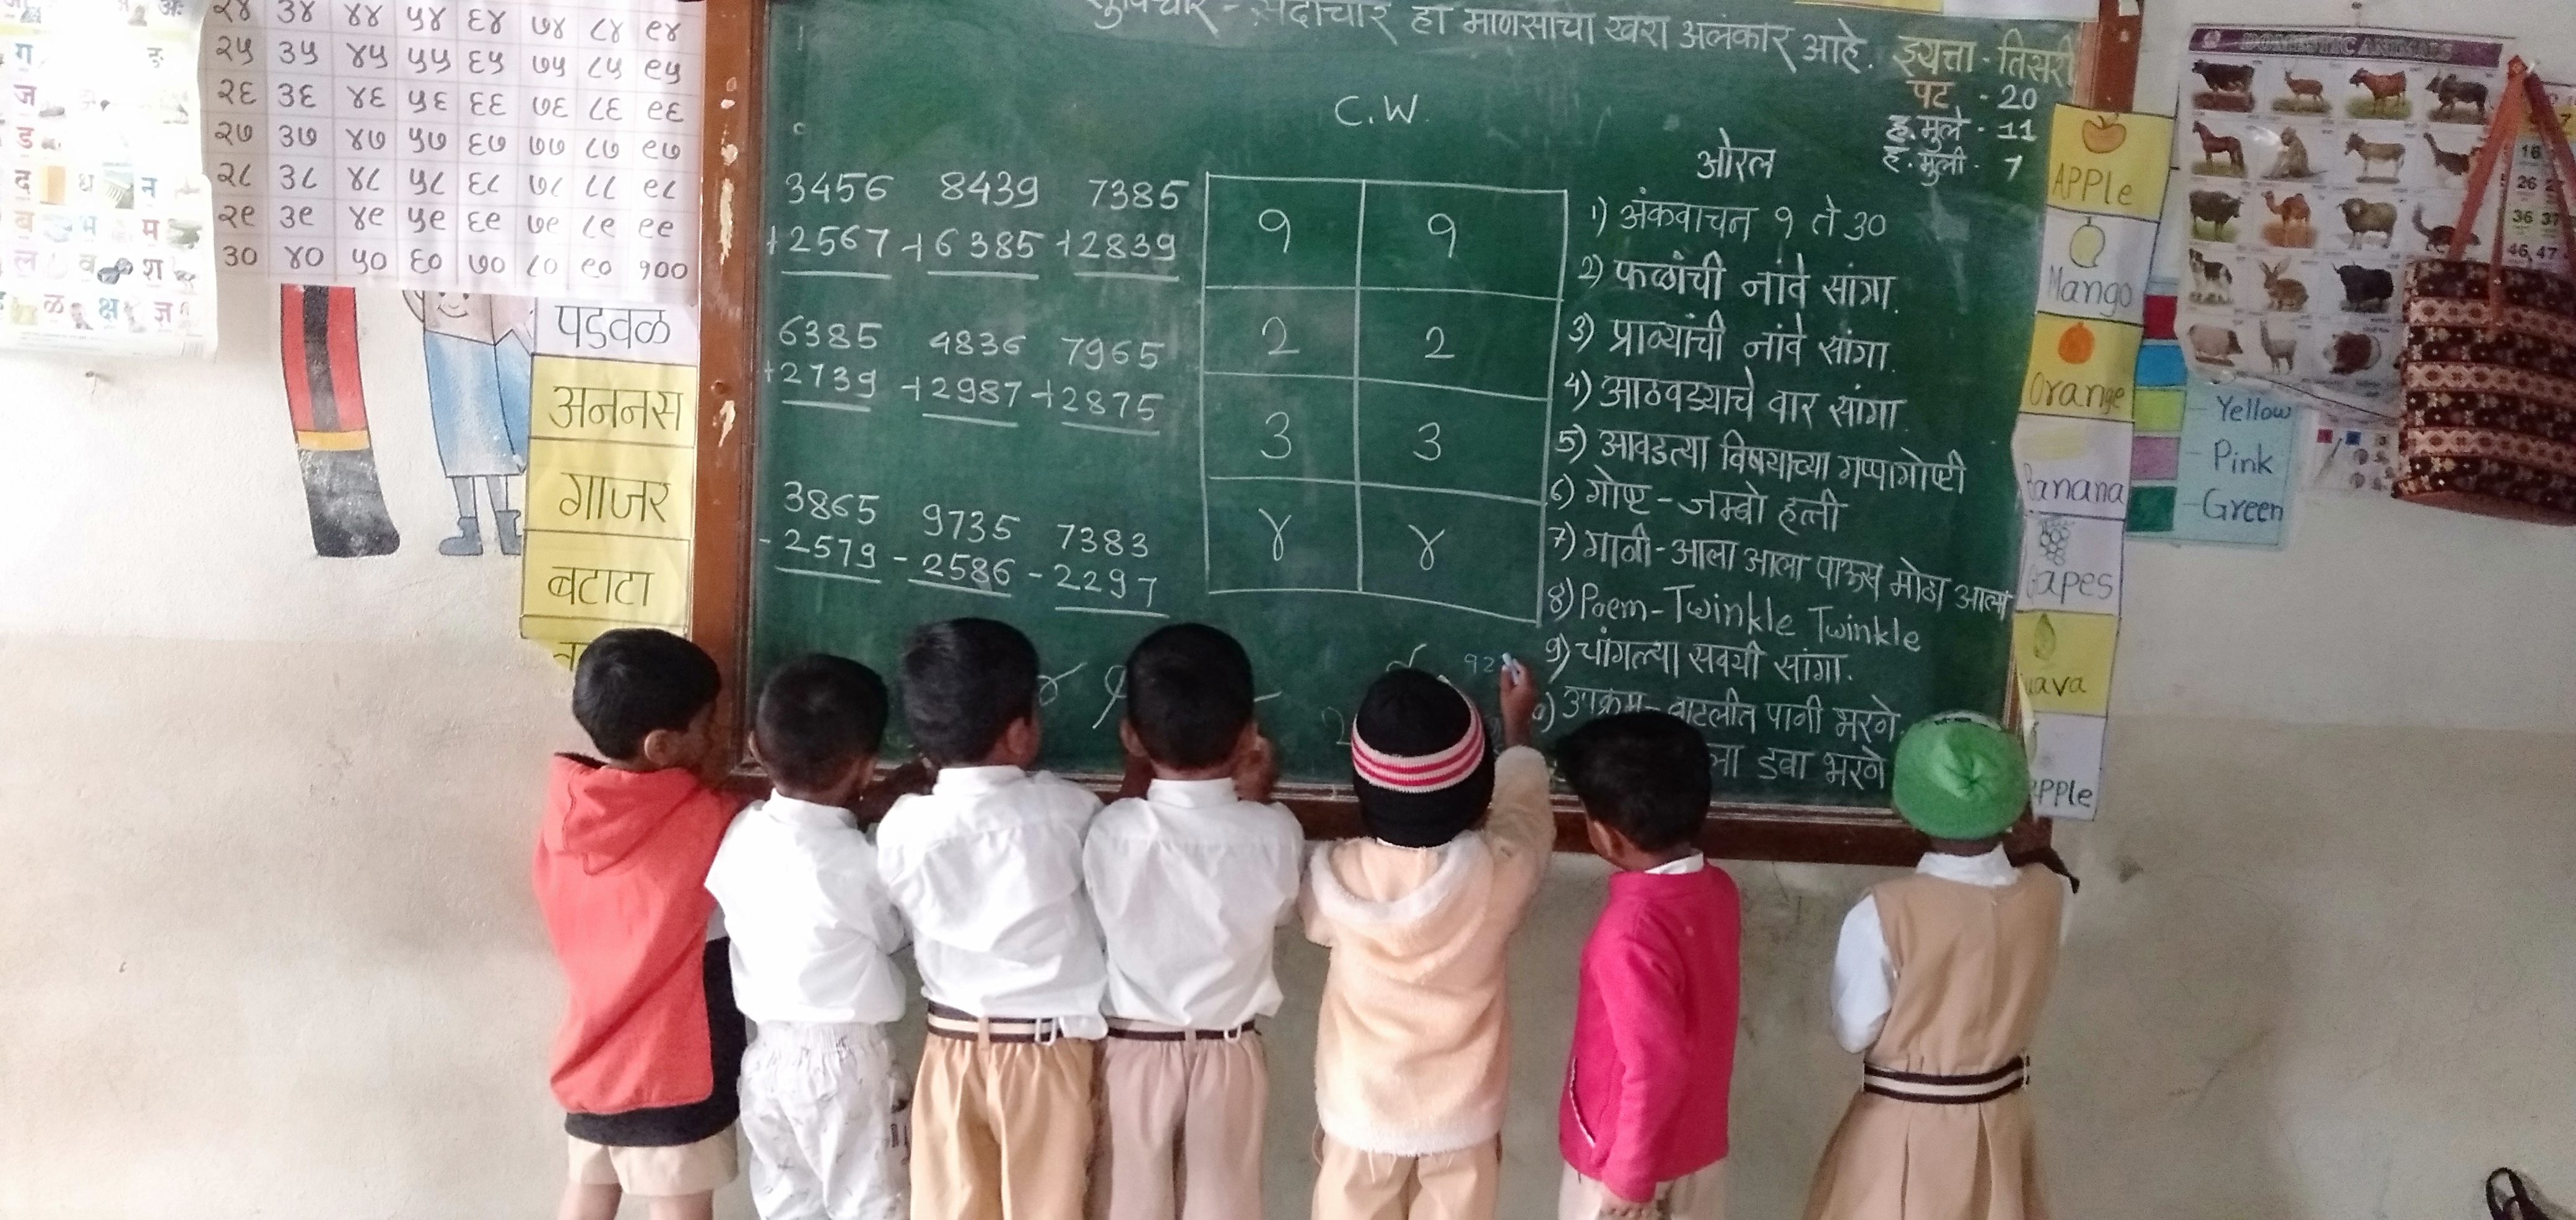 २४ ३४ ४४ ५४ ६४ ७४ ८४ ९४
२५ ३५ ४५ ५५ ६५ ७५ ८५ ९५
२६ ३६ ४६ ५६ ६६ ७६ ८६ ९६
२७ ३७ ४७ ५७ ६७ ७७ ८७ ९७
२८ ३८ ४८ ५८ ६८ ७८ ८८ ९८
२९ ३९ ४९ ५९ ६९ ७९ ८९ ९९
३० ४० ५० ६० ७० ८० ९० १००
ग
ज
ड
द ध न
ब भ म
ल व श
ळ क्ष ज्ञ
पडवळ
अननस
गाजर
बटाटा
सुविचार - सदाचार हा माणसाचा खरा अलंकार आहे.
इयत्ता - तिसरी
पट - 20
ह. मुले - 11
ह. मुली - 7
C.W.
3456 8439 7385
+2567 +6385 +2839
6385 4836 7965
+2739 +2987 +2875
3865 9735 7383
-2579 -2586 -2297
१ १
२ २
३ ३
४ ४
ओरल
1) अंकवाचन १ ते ३०
2) फळांची नांवे सांगा.
3) प्राण्यांची नांवे सांगा.
4) आठवड्याचे वार सांगा.
5) आवडत्या विषयाच्या गप्पागोष्टी
6) गोष्ट - जम्बो हत्ती
7) गाणी - आला आला पाऊस मोठा आला
8) Poem - Twinkle Twinkle
9) चांगल्या सवयी सांगा.
उपक्रम - बाटलीत पाणी भरणे.
डबा भरणे
APPLe
Mango
Orange
Banana
apes
uava
PPLe
DOMESTIC ANIMALS
16
26
36 37
46, 47
- Yellow
- Pink
- Green